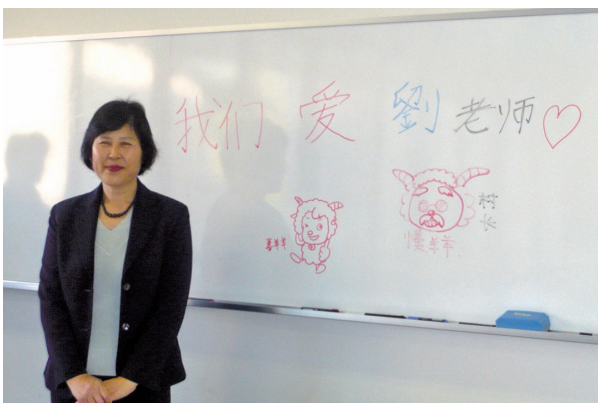 我们 爱 劉老师
喜羊羊
村长
慢羊羊